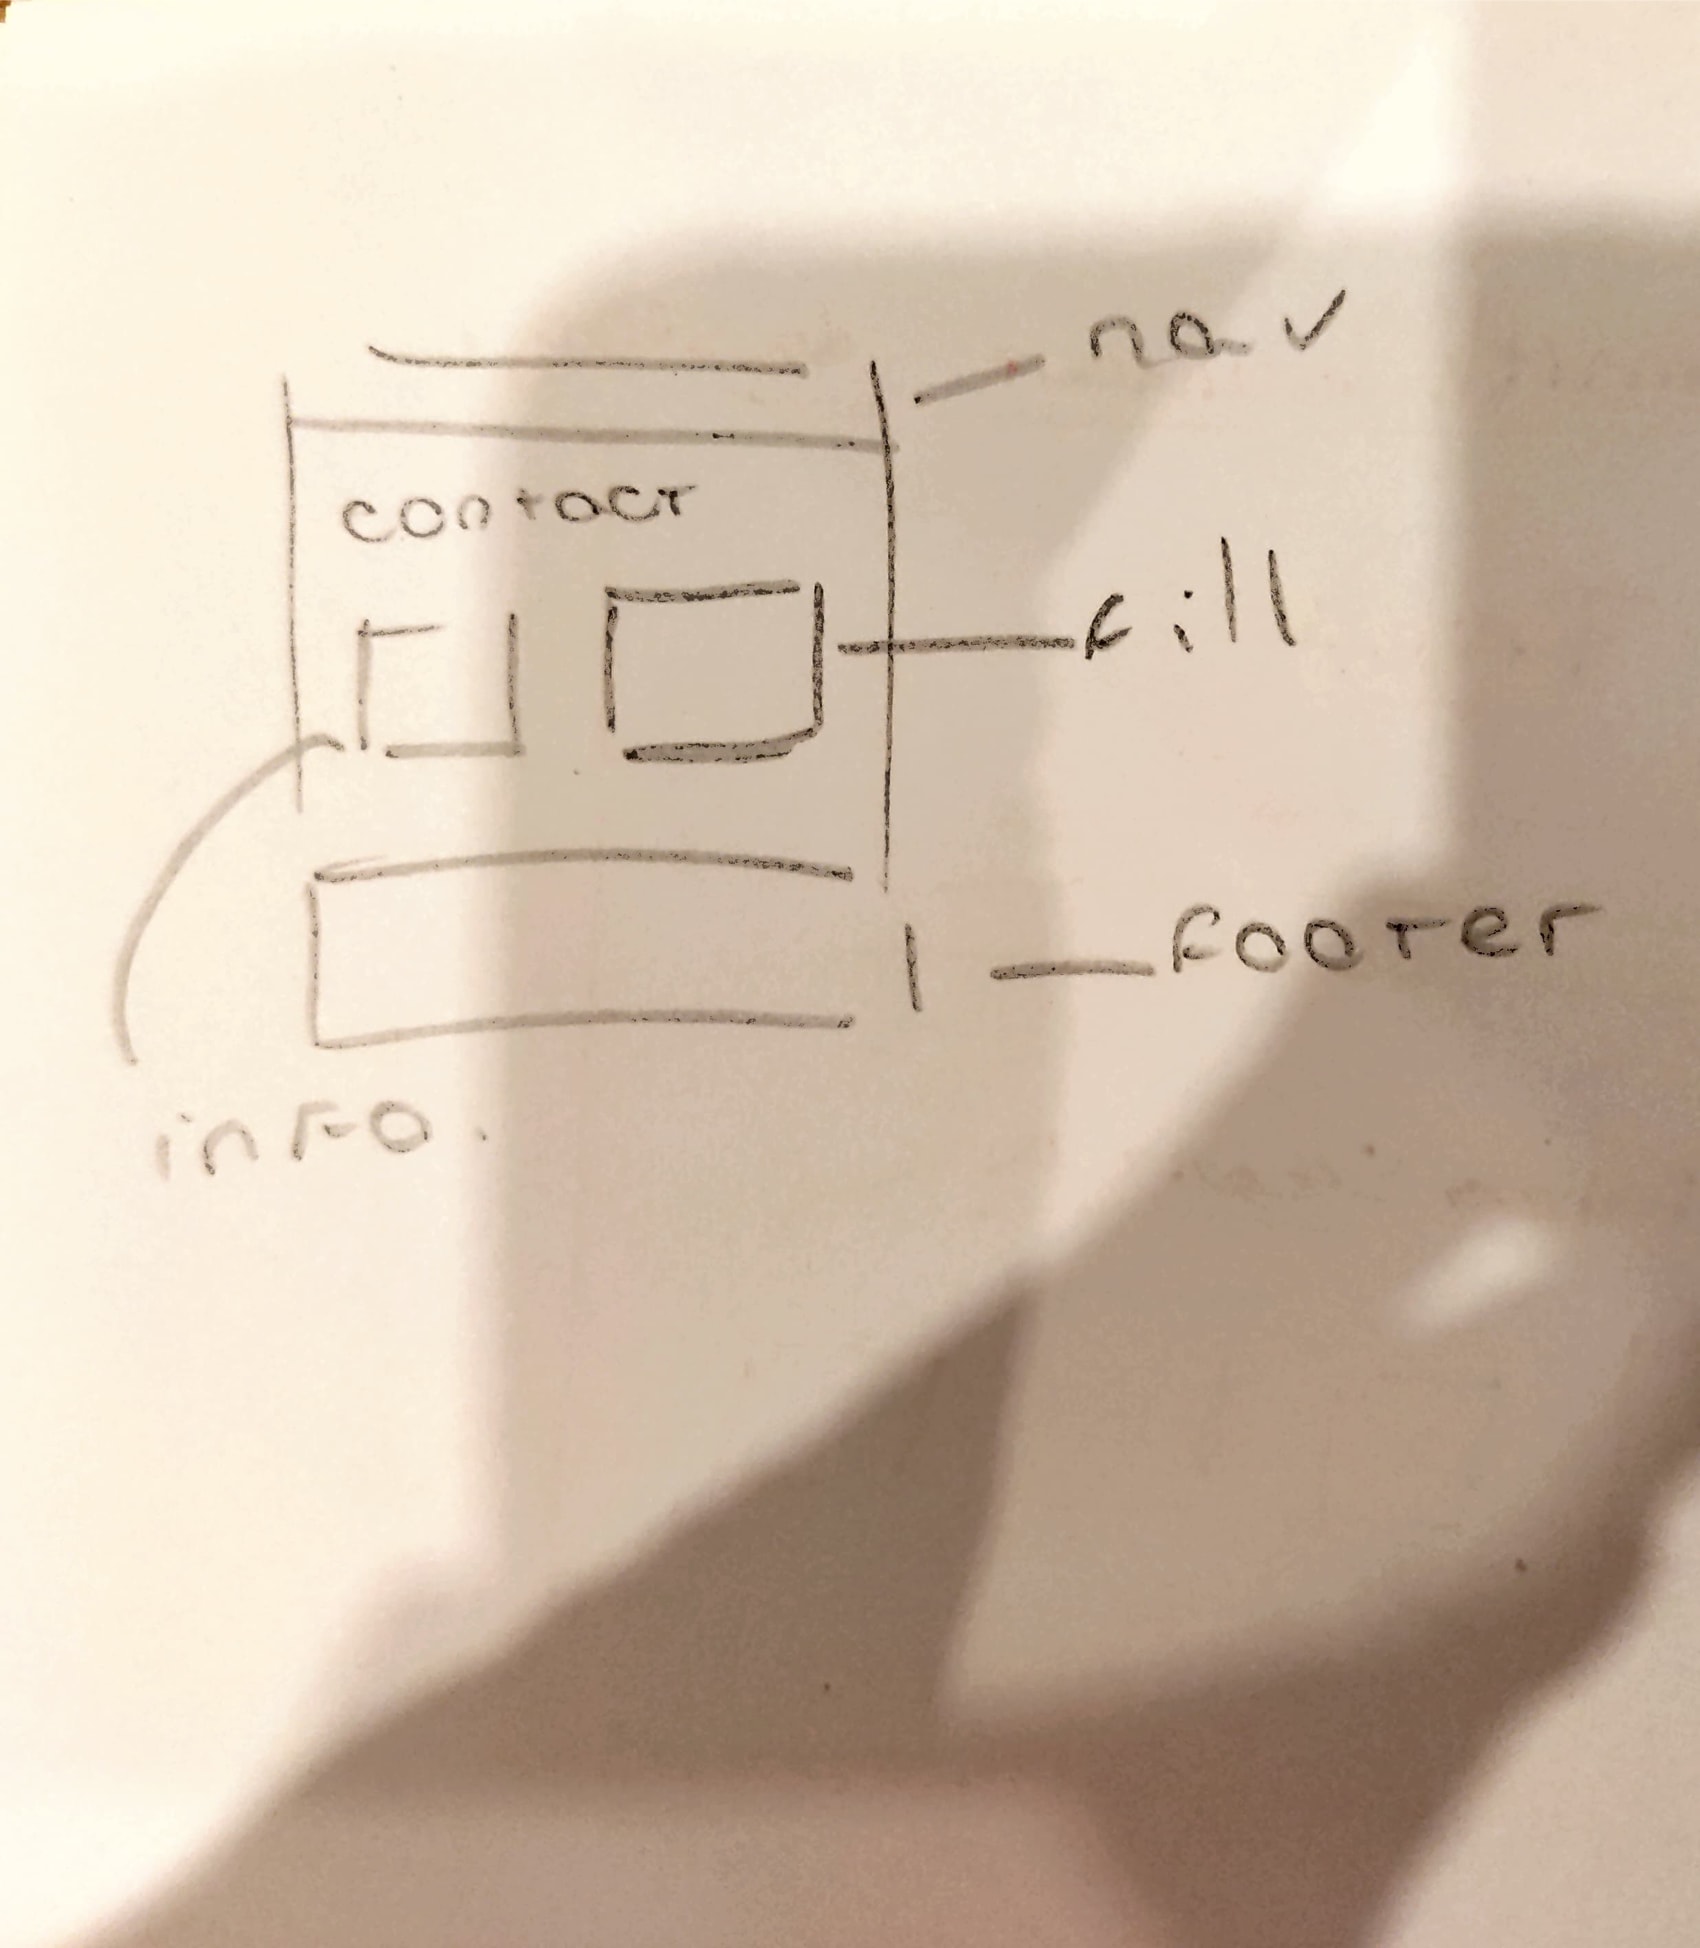 nav
contact
fill
footer
info.